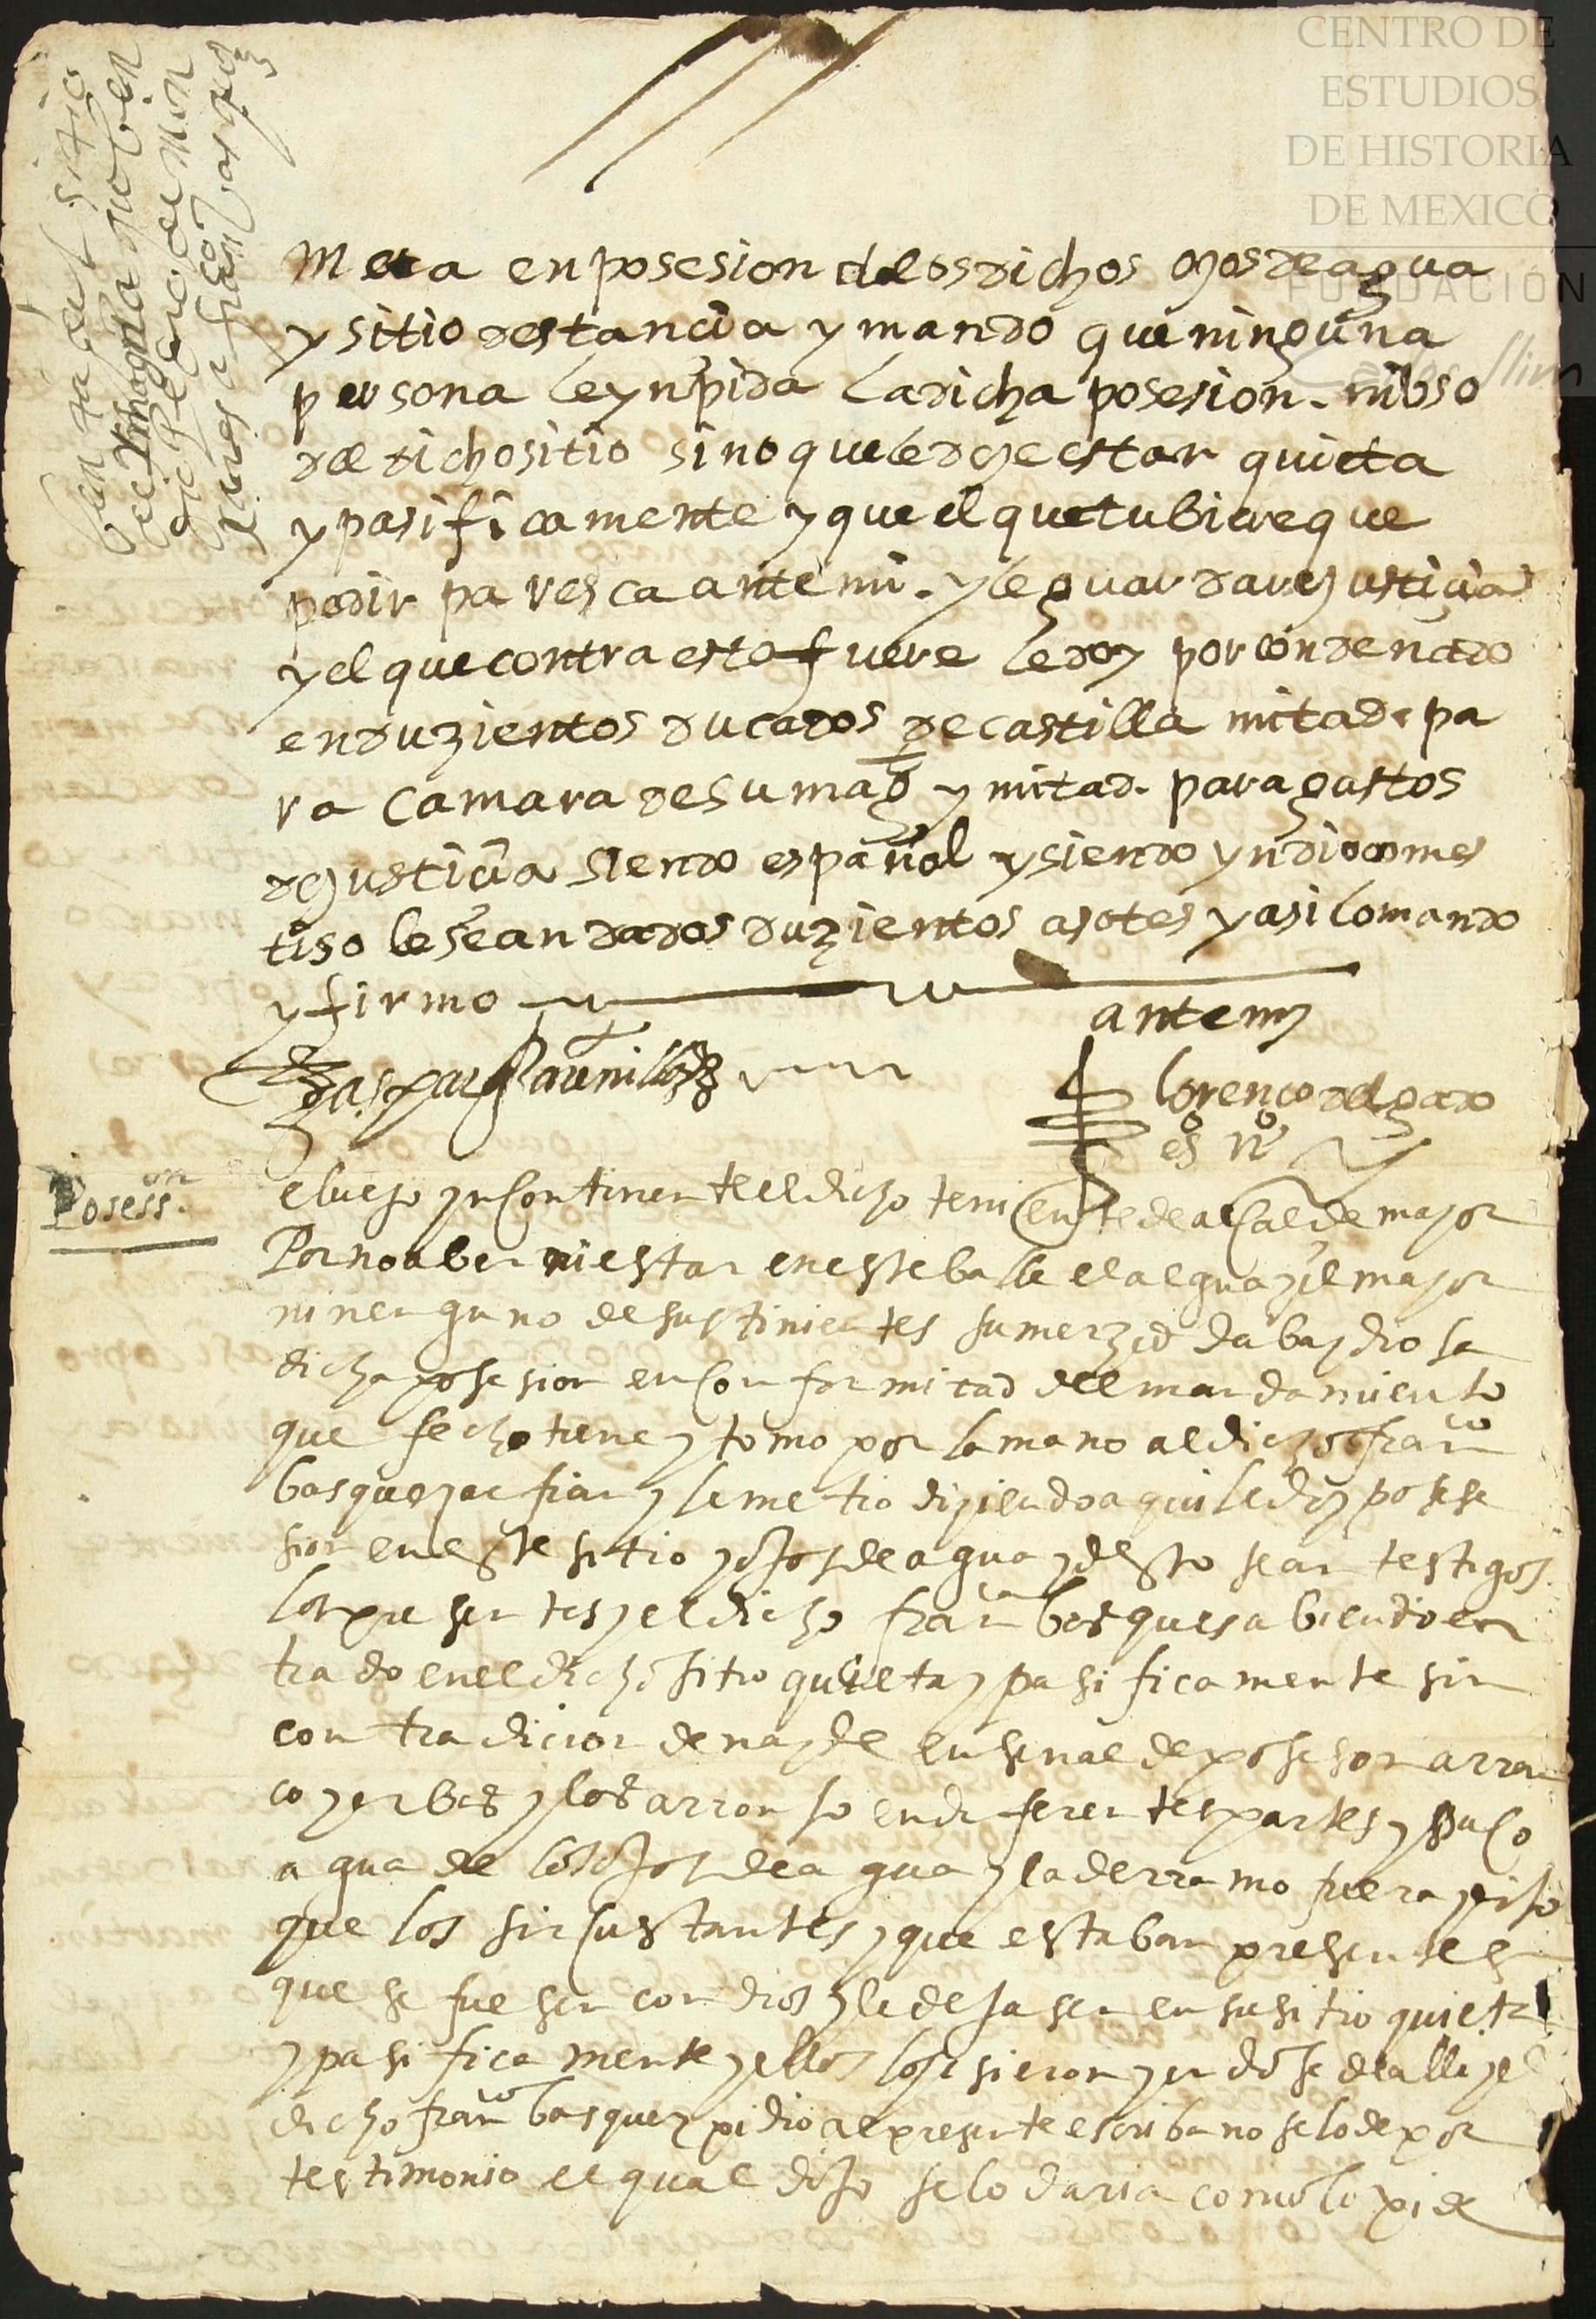 CENTRO DE
ESTUDIOS
DE HISTORIA
DE MEXICO
FUNDACIÓN
Carlos Slim
benta del sitio
de
de min
a franco basquez
Meta en posesion de los dichos ojos de agua
y sitio destancia y mando que ninguna
persona le ynpida la dicha posesion. ni bso
del dicho sitio sino que le deje estar quieta
y pasificamente y que el que tubiere que
pedir paresca ante mi. y le guardare justicia
y el que contra esto fuere le doy por condenado
en duzientos ducados de castilla mitad. pa
ra camara de su magd y mitad. para gastos
de justicia siendo español y siendo yndio o mes
tiso le sean dados duzientos asotes y asi lo mando
y firmo
ante my
gaspar
lorenço delgado
esno
Posesson.
e luego yn continente el dicho teniente de alcalde mayor
Por no aber ni estar en este balle el alguazil mayor
ni nenguno de sus tinientes su merzed daba y dio la
dicha posesion en conformitad del mandamiento
que fecho tiene y tomo por la mano al dicho franco
basquez y le metio diziendo aqui le doy posese
sion en este sitio y ojos de agua y desto sean testigos
los presentes y el dicho franco basques abiendo en
trado en el dicho sitio quieta y pasificamente sin
contradicion de nayde en señal de posesion arran
co yerbas y los arronjo en diferentes partes y saco
agua de los ojos de agua y la derramo fuera y dijo
que los sircustantes y que estaban presentes
que se fuesen con dios y le dejasen en su sitio quieta
y pasificamente y ellos lo isieron yendose de alli y el
dicho franco basquez pidio al presente escribano se lo de por
testimonio el qual dijo se lo daria como lo pide